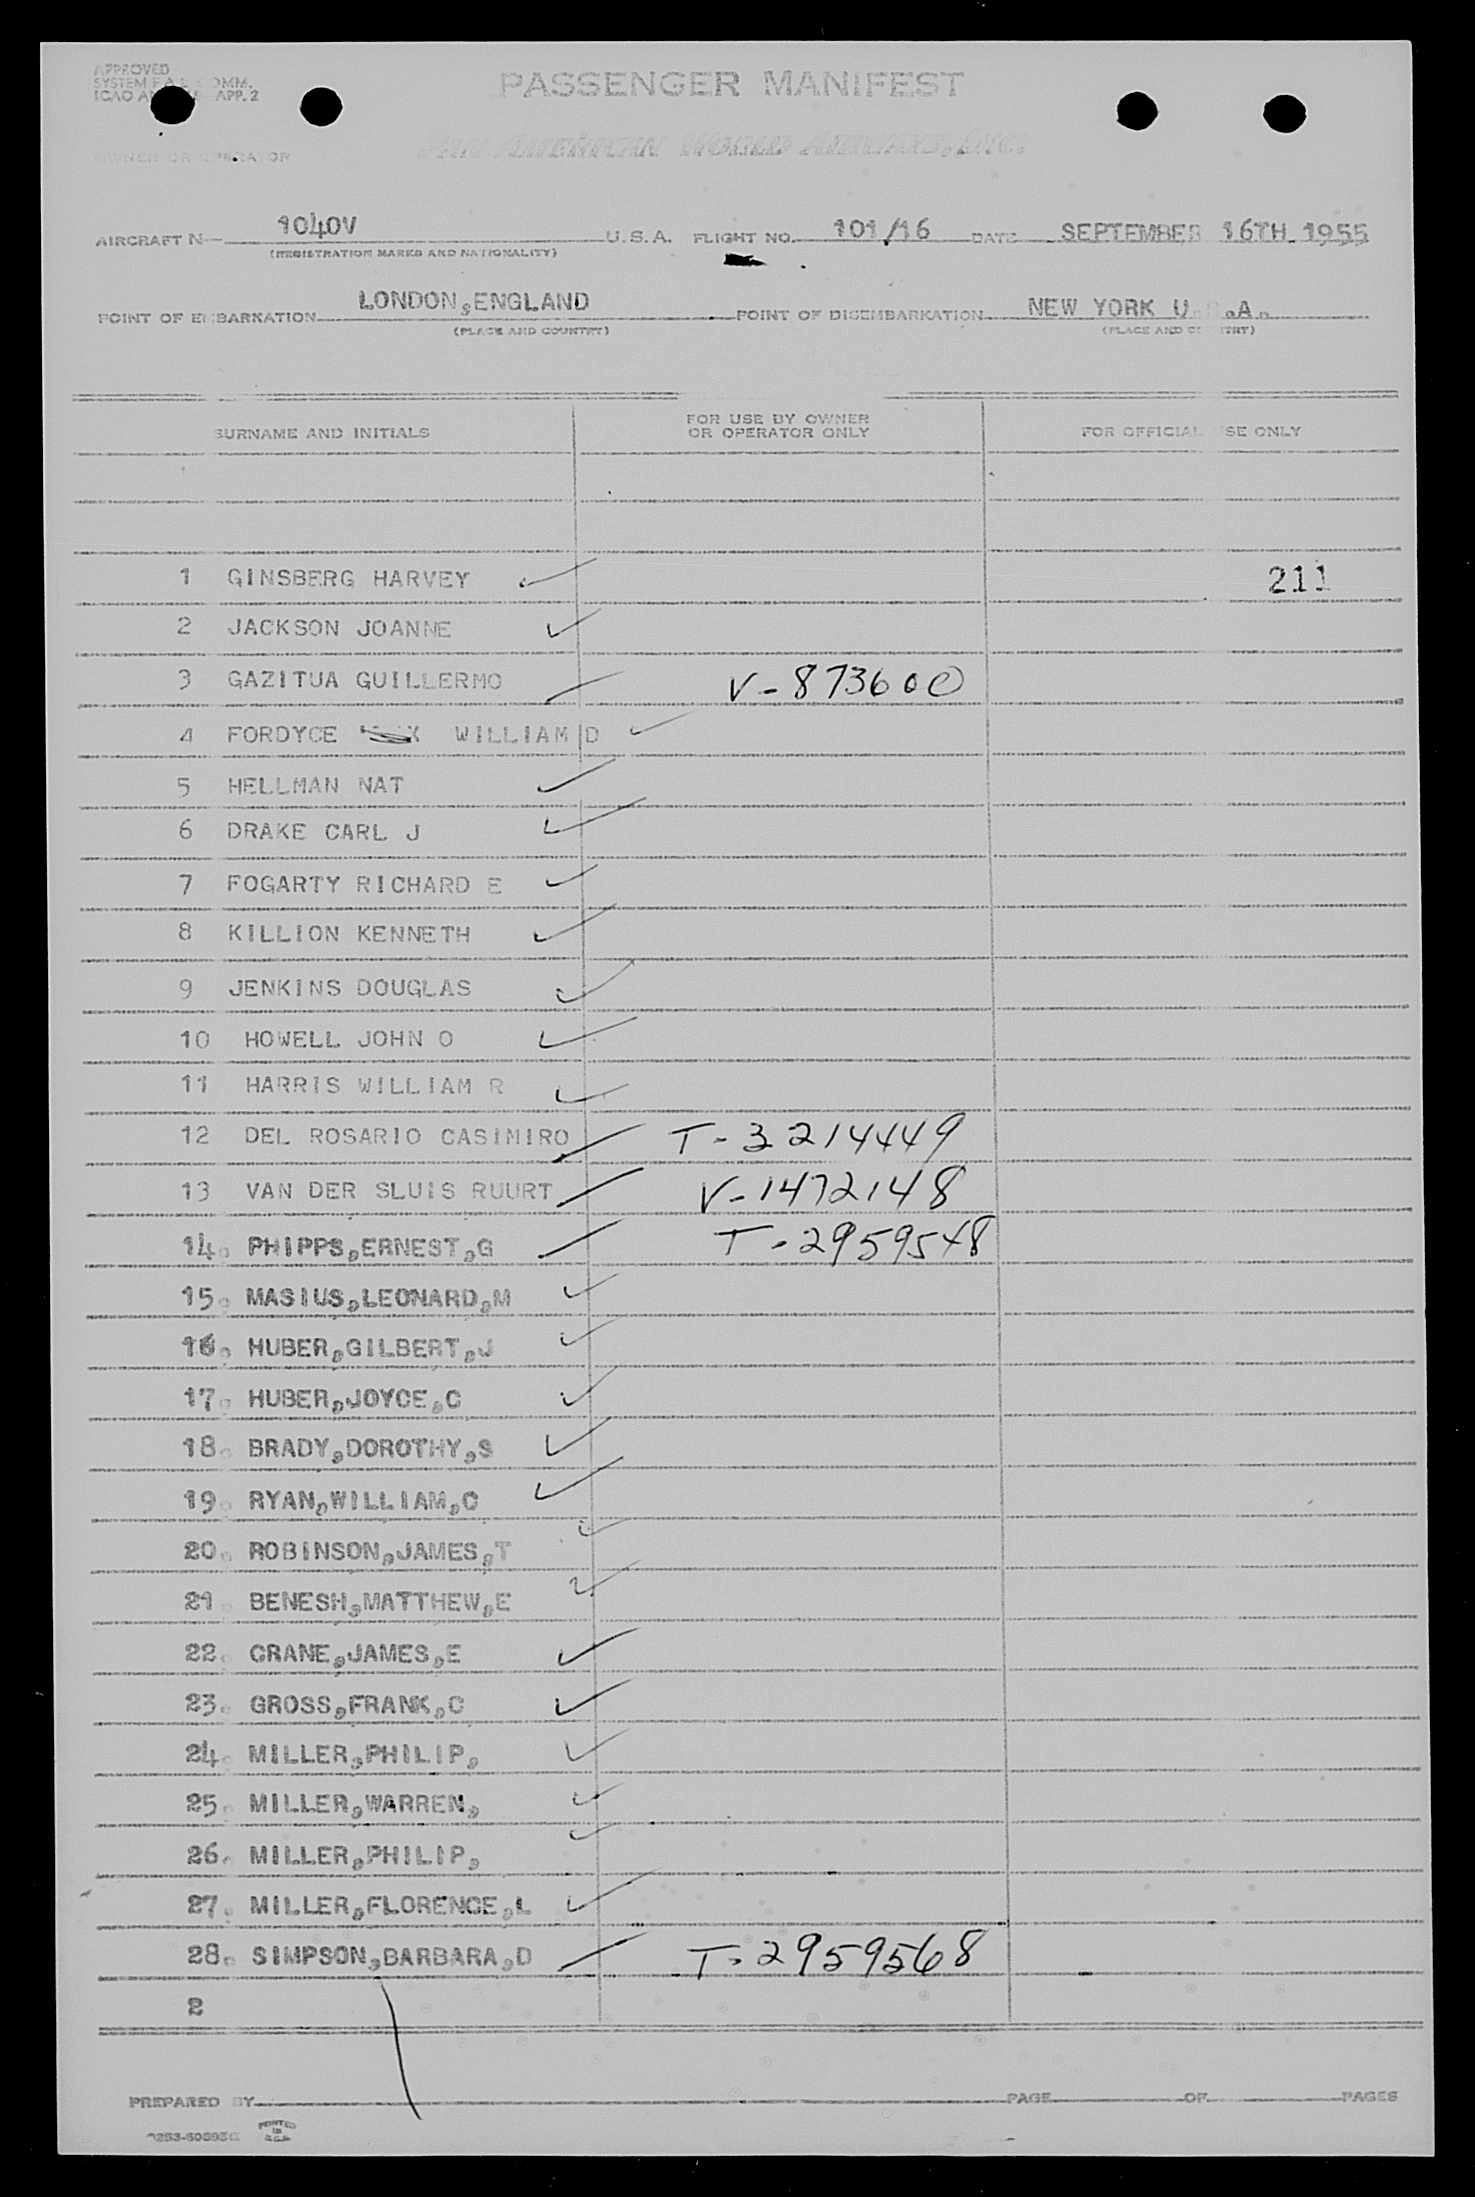 APPROVED
SYSTEM F.A.L. COMM.
ICAO APP. 2
PASSENGER MANIFEST
OWNER OR OPERATOR
PAN AMERICAN WORLD AIRWAYS, INC.
AIRCRAFT N— 1040V U.S.A. FLIGHT NO. 101/16 DATE SEPTEMBER 16TH 1955
(REGISTRATION MARKS AND NATIONALITY)
POINT OF EMBARKATION LONDON,ENGLAND POINT OF DISEMBARKATION NEW YORK U.S.A.
(PLACE AND COUNTRY) (PLACE AND COUNTRY)
SURNAME AND INITIALS FOR USE BY OWNER OR OPERATOR ONLY FOR OFFICIAL USE ONLY
1 GINSBERG HARVEY 211
2 JACKSON JOANNE
3 GAZITUA GUILLERMO V-873600
4 FORDYCE WILLIAM D
5 HELLMAN NAT
6 DRAKE CARL J
7 FOGARTY RICHARD E
8 KILLION KENNETH
9 JENKINS DOUGLAS
10 HOWELL JOHN O
11 HARRIS WILLIAM R
12 DEL ROSARIO CASIMIRO T-3214449
13 VAN DER SLUIS RUURT V-1472148
14. PHIPPS,ERNEST,G T-2959548
15. MASIUS,LEONARD,M
16. HUBER,GILBERT,J
17. HUBER,JOYCE,C
18. BRADY,DOROTHY,S
19. RYAN,WILLIAM,C
20. ROBINSON,JAMES,T
21. BENESH,MATTHEW,E
22. CRANE,JAMES,E
23. GROSS,FRANK,C
24. MILLER,PHILIP,
25. MILLER,WARREN,
26. MILLER,PHILIP,
27. MILLER,FLORENCE,L
28. SIMPSON,BARBARA,D T-2959568
2
PREPARED BY PAGE OF PAGES
PRINTED
IN
U.S.A.